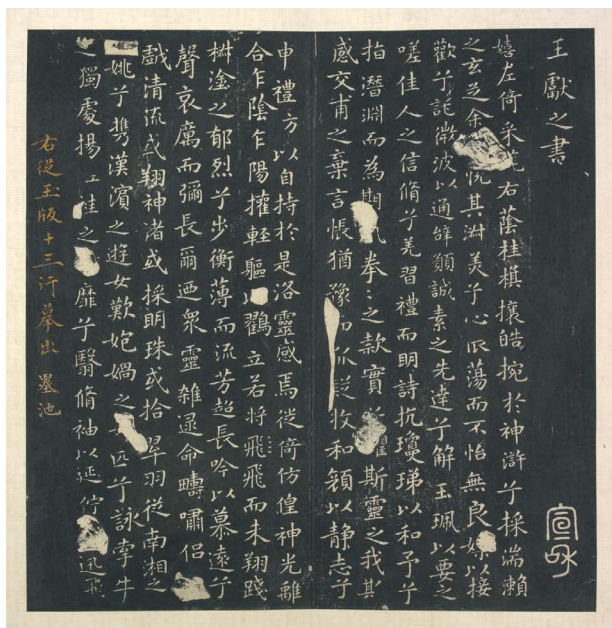 王獻之書
嬉左倚采旄右蔭桂旗攘皓捥於神滸兮採湍瀨
之玄芝余悅其淑美兮心振蕩而不怡無良媒以接
歡兮託微波以通辭願誠素之先達兮解玉珮以要之
嗟佳人之信脩兮羌習禮而明詩抗瓊珶以和予兮
指潛淵而為期執拳〻之款實斯靈之我其
感交甫之棄言悵猶豫而狐疑收和顏以静志兮
申禮方以自持於是洛靈感焉徙倚仿偟神光離
合乍陰乍陽擢輕軀以鶴立若將飛飛而未翔踐
椒塗之郁烈兮步衡薄而流芳超長吟以慕遠兮
聲哀厲而彌長爾迺衆靈雜遝命疇嘯侶
戲清流或翔神渚或採明珠或拾翠羽從南湘之
姚兮攜漢濱之遊女歎匏媧之匹兮詠牽牛
之獨處揚袿之靡兮翳脩袖以延佇迅飛
右從玉版十三行摹出 墨池
宣和